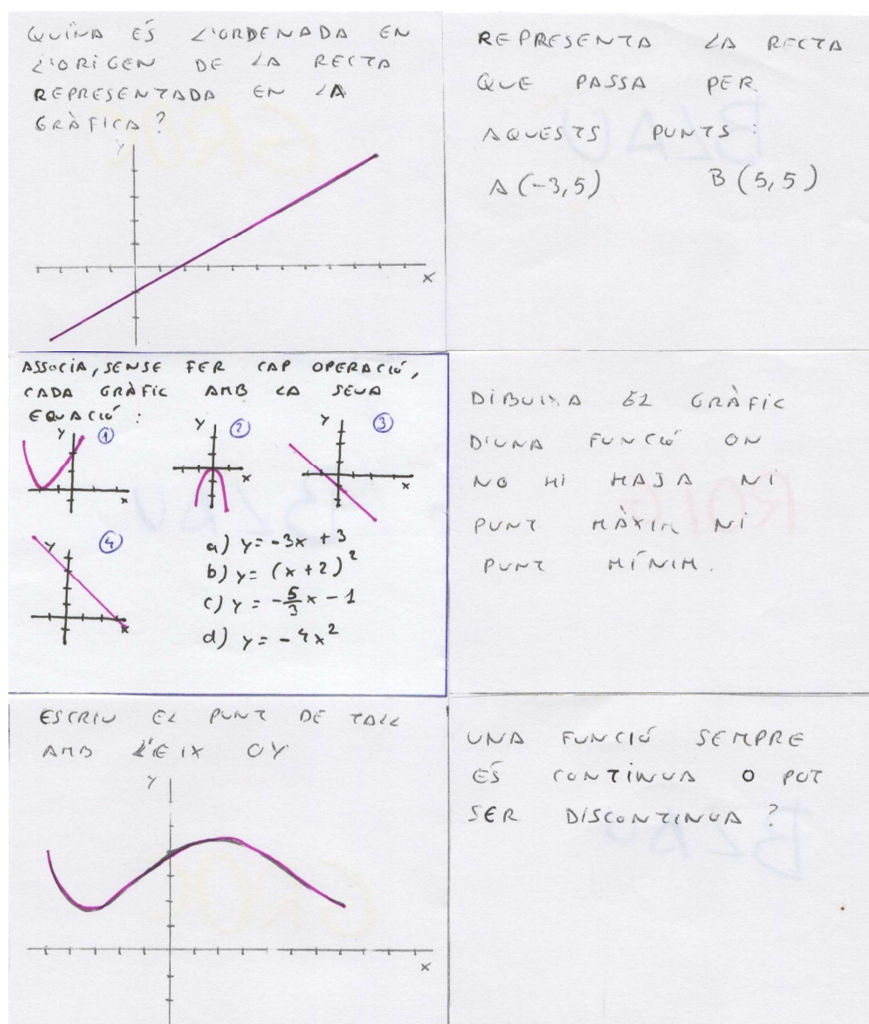 QUINA ÉS L'ORDENADA EN
L'ORIGEN DE LA RECTA
REPRESENTADA EN LA
GRÀFICA?
Y
X
REPRESENTA LA RECTA
QUE PASSA PER
AQUESTS PUNTS:
A(-3,5) B(5,5)
ASSOCIA, SENSE FER CAP OPERACIÓ,
CADA GRÀFIC AMB LA SEUA
EQUACIÓ:
Y 1 X
Y 2 X
Y 3 X
Y 4 X
a) y = -3x + 3
b) y = (x+2)²
c) y = -5/3x - 1
d) y = -4x²
DIBUIXA EL GRÀFIC
D'UNA FUNCIÓ ON
NO HI HAJA NI
PUNT MÀXIM NI
PUNT MÍNIM.
ESCRIU EL PUNT DE TALL
AMB L'EIX OY
Y
X
UNA FUNCIÓ SEMPRE
ÉS CONTÍNUA O POT
SER DISCONTINUA?